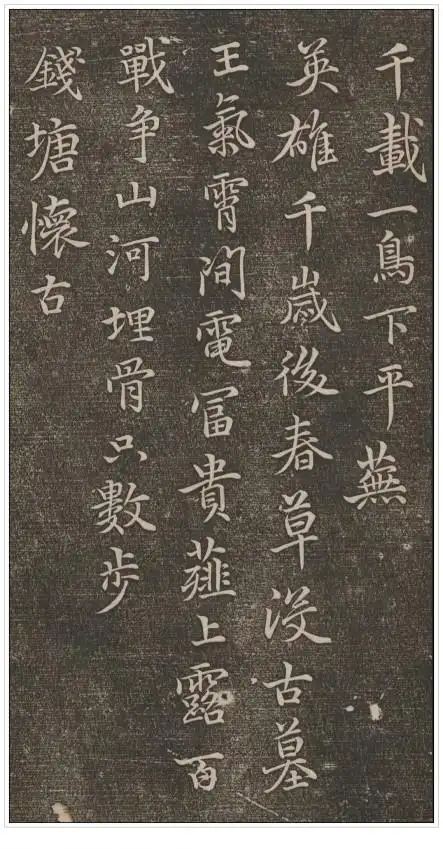 千載一鳥下平蕪
英雄千歲後春草没古墓
王氣霄間電冨貴薤上露百
戰争山河埋骨只數步
錢塘懷古